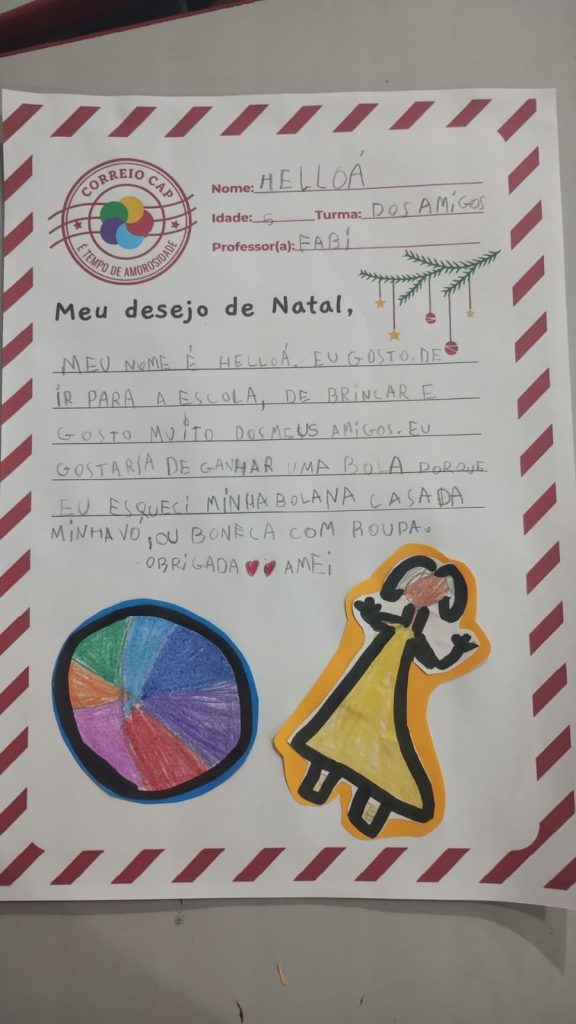 CORREIO CAP
É TEMPO DE AMOROSIDADE
Nome: HELLOÁ
Idade: 5 Turma: DOS AMIGOS
Professor(a): FABI
Meu desejo de Natal,
MEU NOME É HELLOÁ. EU GOSTO. DE
IR PARA A ESCOLA, DE BRINCAR E
GOSTO MUITO DOS MEUS AMIGOS. EU
GOSTARIA DE GANHAR UMA BOLA PORQUE
EU ESQUECI MINHA BOLA NA CASA DA
MINHA VÓ, OU BONECA COM ROUPA.
OBRIGADA ❤❤ AMEI